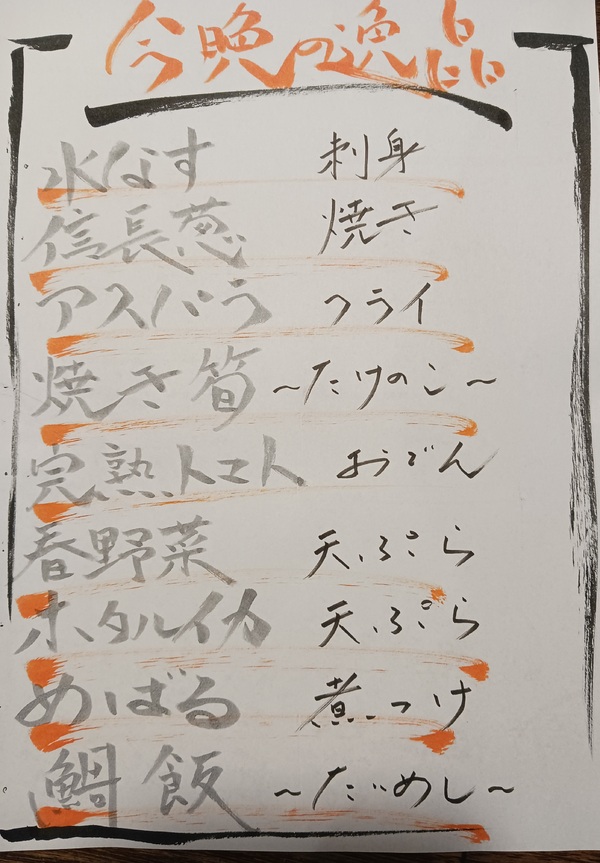 今晩の逸品
水なす 刺身
信長葱 焼き
アスパラ フライ
焼き筍 ~たけのこ~
完熟トマト おでん
春野菜 天ぷら
ホタルイカ 天ぷら
めばる 煮つけ
鯛飯 ~たいめし~